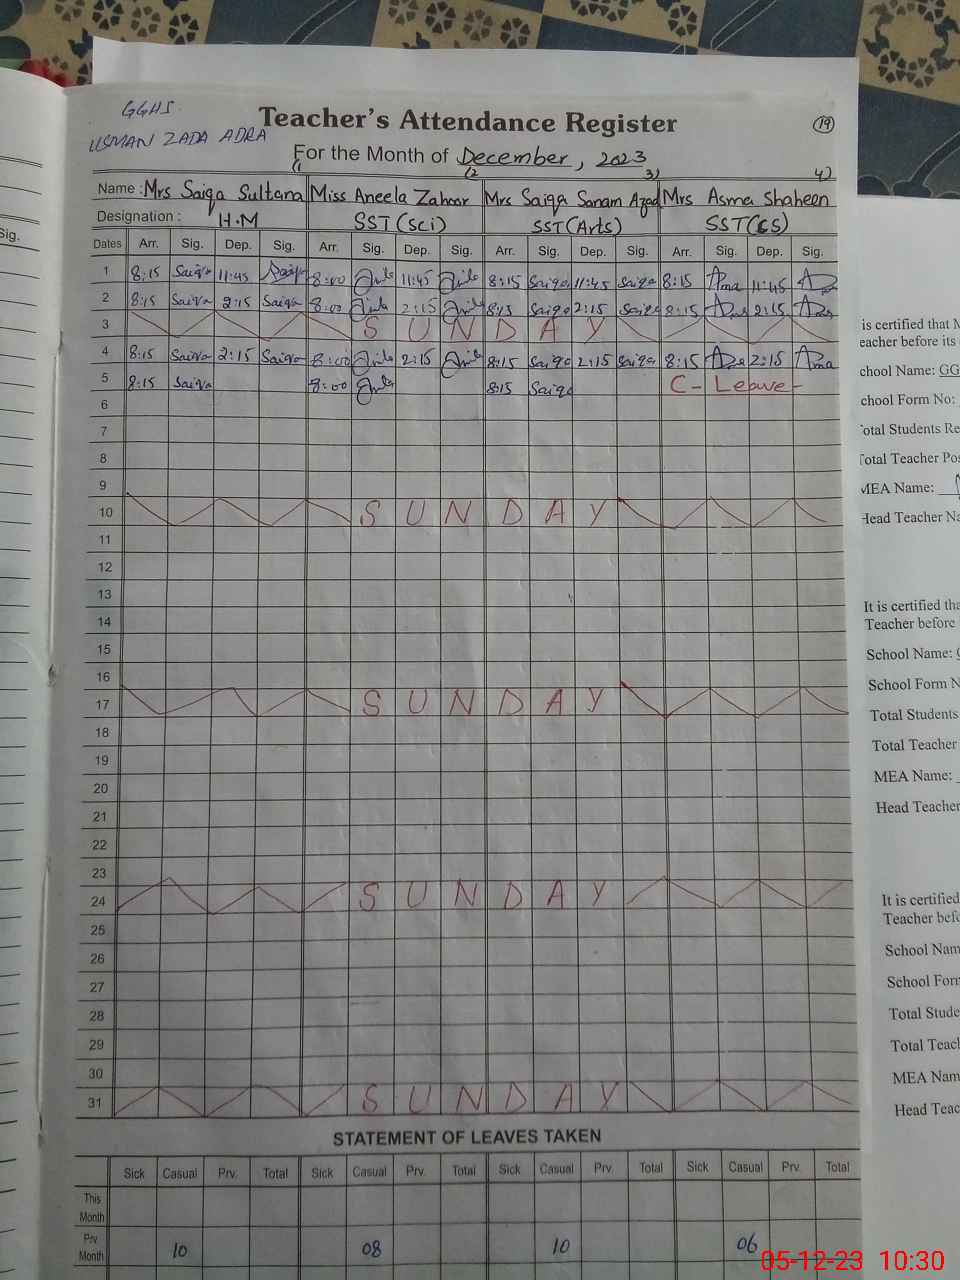 GGHS.
USMAN ZADA ADRA
Teacher's Attendance Register
19
For the Month of December, 2023
(1 (2 3) 4)
Name : Mrs Saiqa Sultana Miss Aneela Zahoor Mrs Saiqa Sanam Azad Mrs Asma Shaheen
Designation : H.M SST(Sci) SST(Arts) SST(CS)
Dates Arr. Sig. Dep. Sig. Arr. Sig. Dep. Sig. Arr. Sig. Dep. Sig. Arr. Sig. Dep. Sig.
1 8:15 Saiqa 11:45 Saiqa 8:00 11:45 8:15 Saiqa 11:45 Saiqa 8:15 11:45
2 8:15 Saiqa 2:15 Saiqa 8:00 2:15 8:15 Saiqa 2:15 Saiqa 8:15 2:15
3 SUNDAY
4 8:15 Saiqa 2:15 Saiqa 8:00 2:15 8:15 Saiqa 2:15 Saiqa 8:15 2:15
5 8:15 Saiqa 8:00 8:15 Saiqa C- Leave -
6
7
8
9
10 SUNDAY
11
12
13
14
15
16
17 SUNDAY
18
19
20
21
22
23
24 SUNDAY
25
26
27
28
29
30
31 SUNDAY
STATEMENT OF LEAVES TAKEN
Sick Casual Prv. Total Sick Casual Prv. Total Sick Casual Prv. Total Sick Casual Prv. Total
This
Month
Prv
Month 10 08 10 06
Sig.
is certified that M
eacher before its
chool Name: GG
chool Form No:
Total Students Re
Total Teacher Pos
MEA Name:
Head Teacher Na
It is certified tha
Teacher before
School Name: G
School Form N
Total Students
Total Teacher
MEA Name:
Head Teacher
It is certified
Teacher befo
School Nam
School Form
Total Stude
Total Teach
MEA Nam
Head Teac
05-12-23 10:30